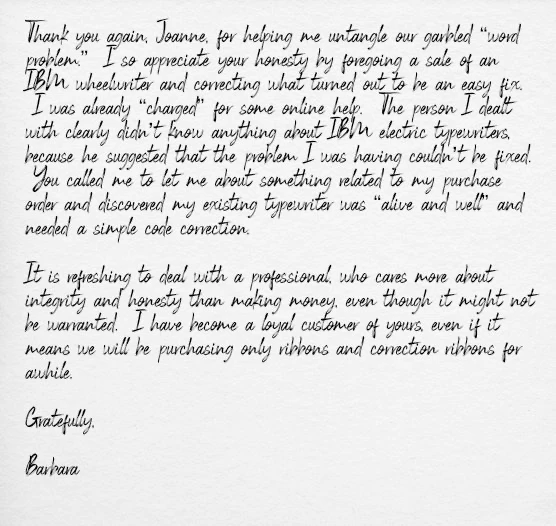 Thank you again, Joanne, for helping me untangle our garbled "word
problem." I so appreciate your honesty by foregoing a sale of an
IBM wheelwriter and correcting what turned out to be an easy fix.
I was already "charged" for some online help. The person I dealt
with clearly didn't know anything about IBM electric typewriters,
because he suggested that the problem I was having couldn't be fixed.
You called me to let me about something related to my purchase
order and discovered my existing typewriter was "alive and well" and
needed a simple code correction.

It is refreshing to deal with a professional, who cares more about
integrity and honesty than making money, even though it might not
be warranted. I have become a loyal customer of yours, even if it
means we will be purchasing only ribbons and correction ribbons for
awhile.

Gratefully,

Barbara